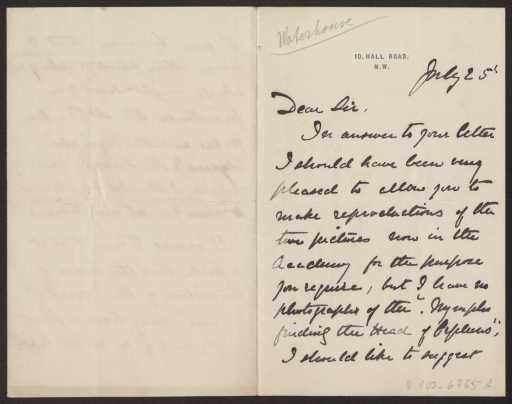 Waterhouse
10, HALL ROAD,
N.W.
July 25
Dear Sir.
In answer to your letter
I should have been very
pleased to allow you to
make reproductions of the
two pictures now in the
Academy for the purpose
you require, but I have no
photographs of the "Nymphs
finding the Head of Orpheus",
I should like to suggest